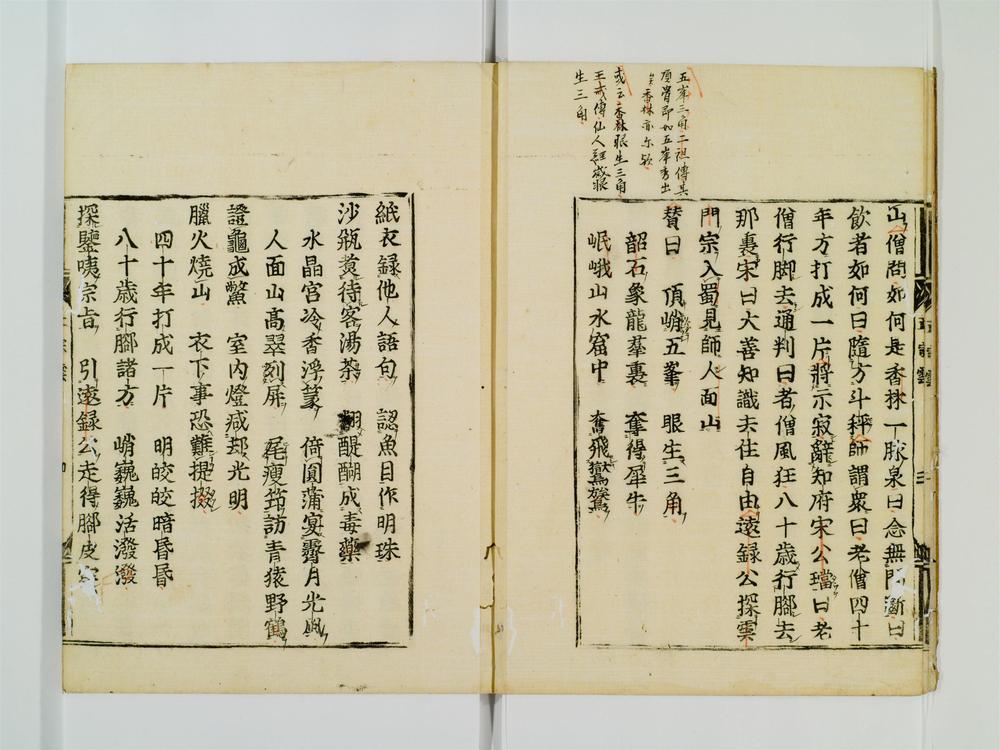 五峯三角二祖傳其
頂骨即如五峯秀出
矣香林亦尔欤
或云香林眼生三角
王戎傳仙人經歲眼
生三角
山僧問如何是香林一脉泉曰念無間斷曰
飲者如何曰隨方斗秤師謂衆曰老僧四十
年方打成一片將示寂辭知府宋公璫曰老
僧行脚去通判曰者僧風狂八十歲行腳去
那裏宋曰大善知識去住自由遠錄公探雲
門宗入蜀見師人面山
賛曰 頂峭五峯 眼生三角
韶石象龍羣裏 奪得犀牛
岷峨山水窟中 奮飛鸑鷟
紙衣録他人語句 認魚目作明珠
沙瓶煑待客湯茶 翻醍醐成毒藥
水晶宮冷香浮篆 倚圓蒲宴霽月光風
人面山高翠列屏 尾瘦筇訪青猿野鶴
證龜成鱉 室内燈滅却光明
臘火燒山 衣下事恐難提掇
四十年打成一片 明皎皎暗昬昬
八十歲行腳諸方 峭巍巍活潑潑
探鑒咦宗旨 引遠録公走得腳皮